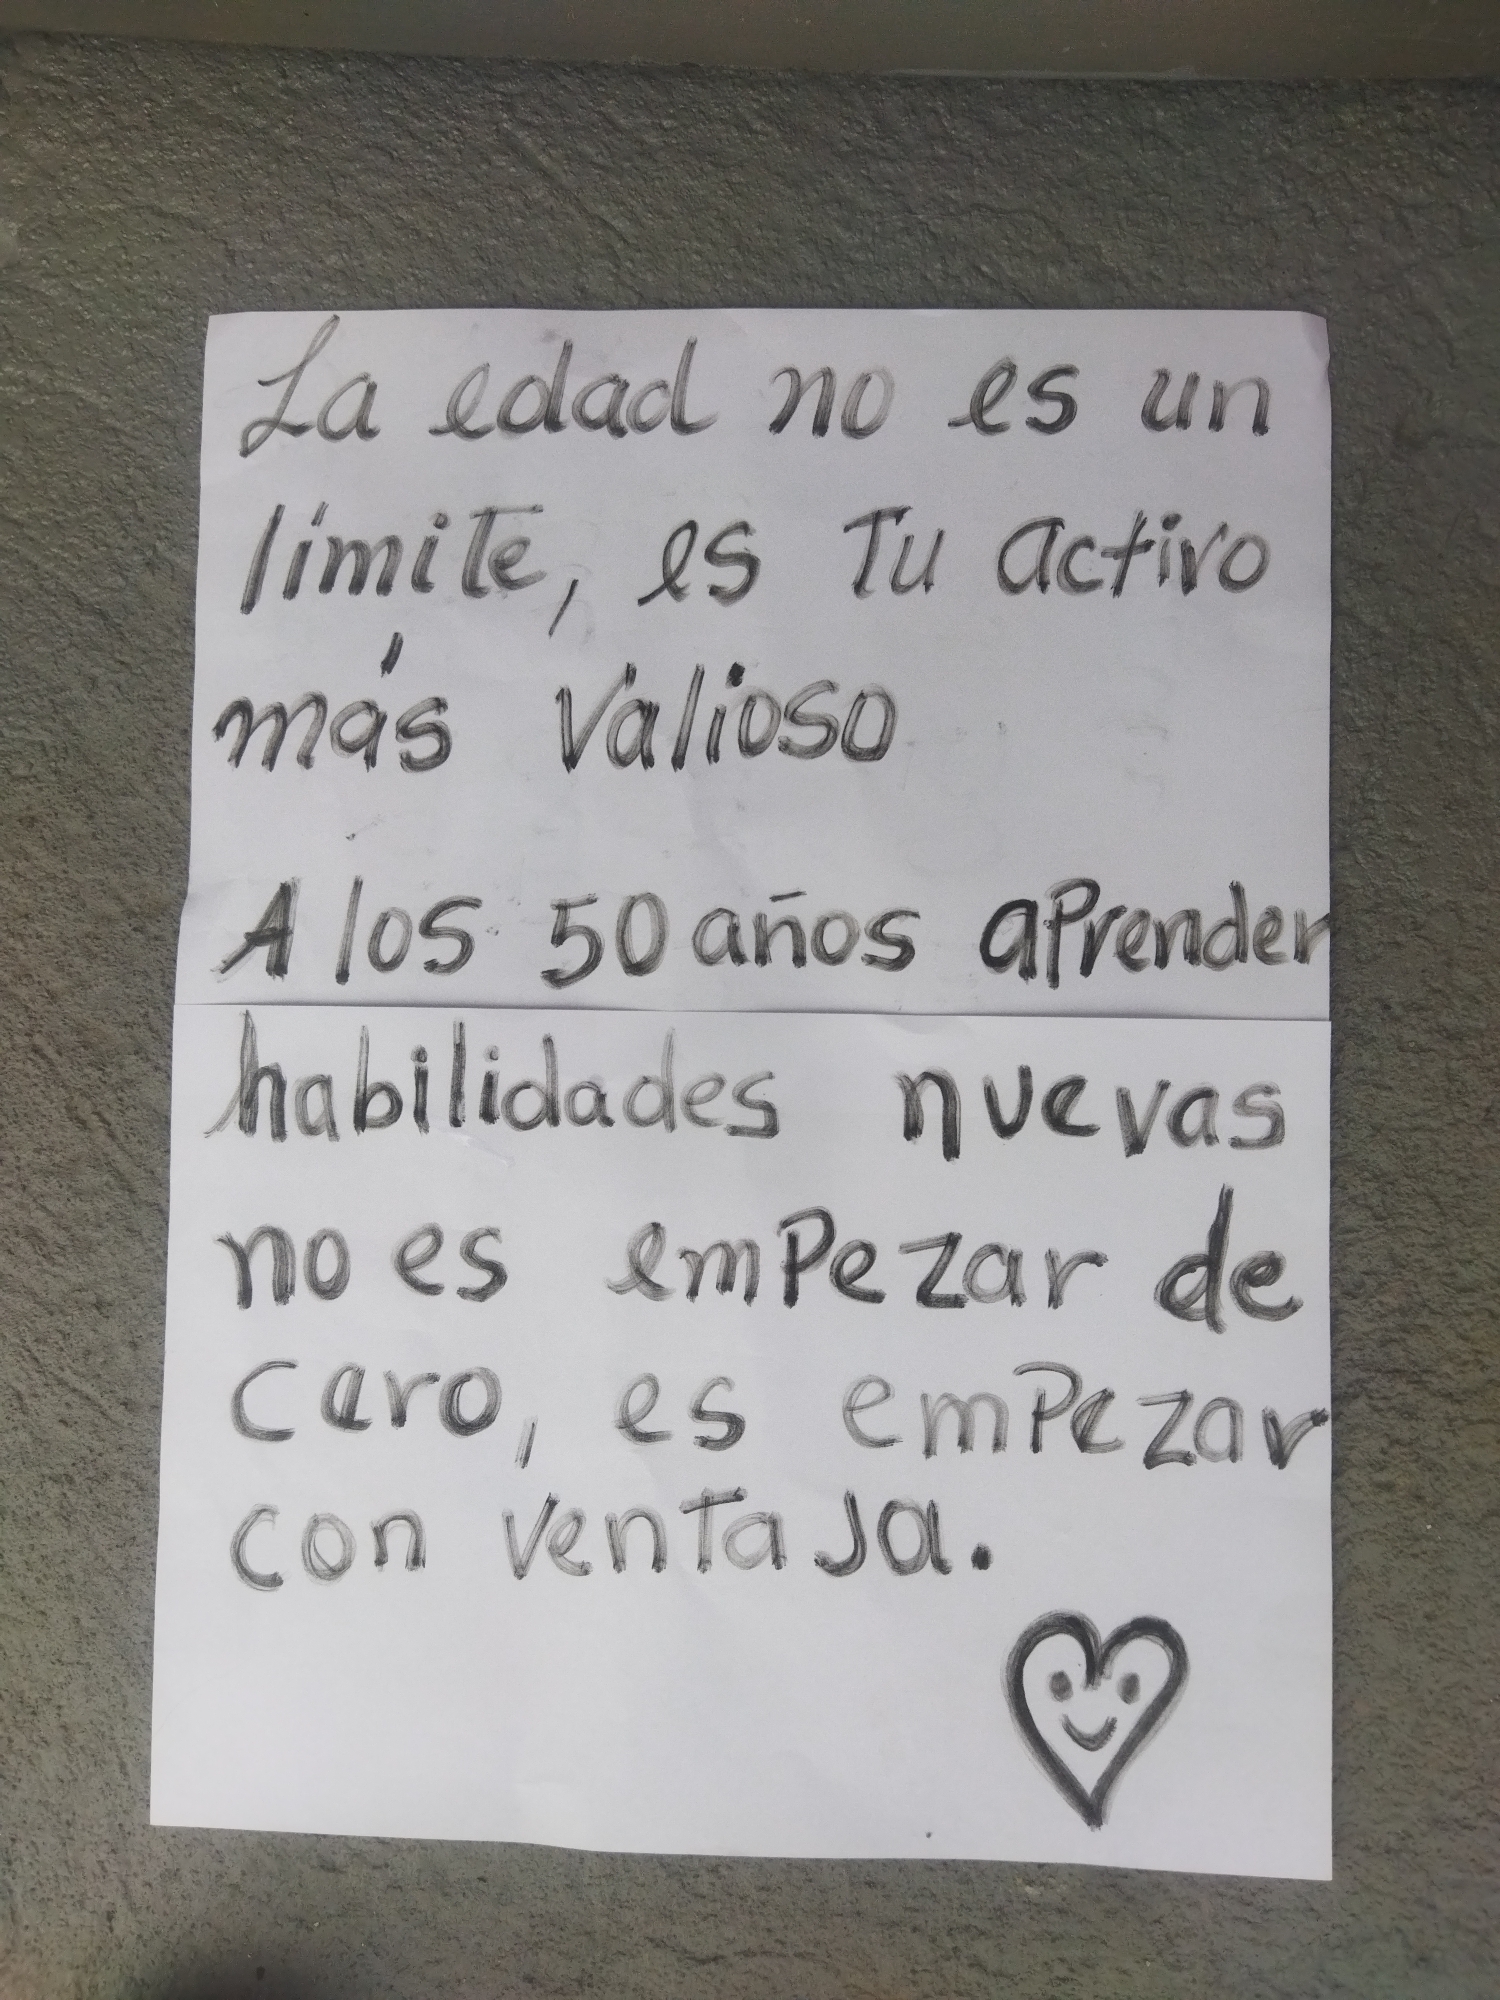 La edad no es un
límite, es Tu activo
más valioso
A los 50 años aprender
habilidades nuevas
no es empezar de
cero, es empezar
con ventaja.